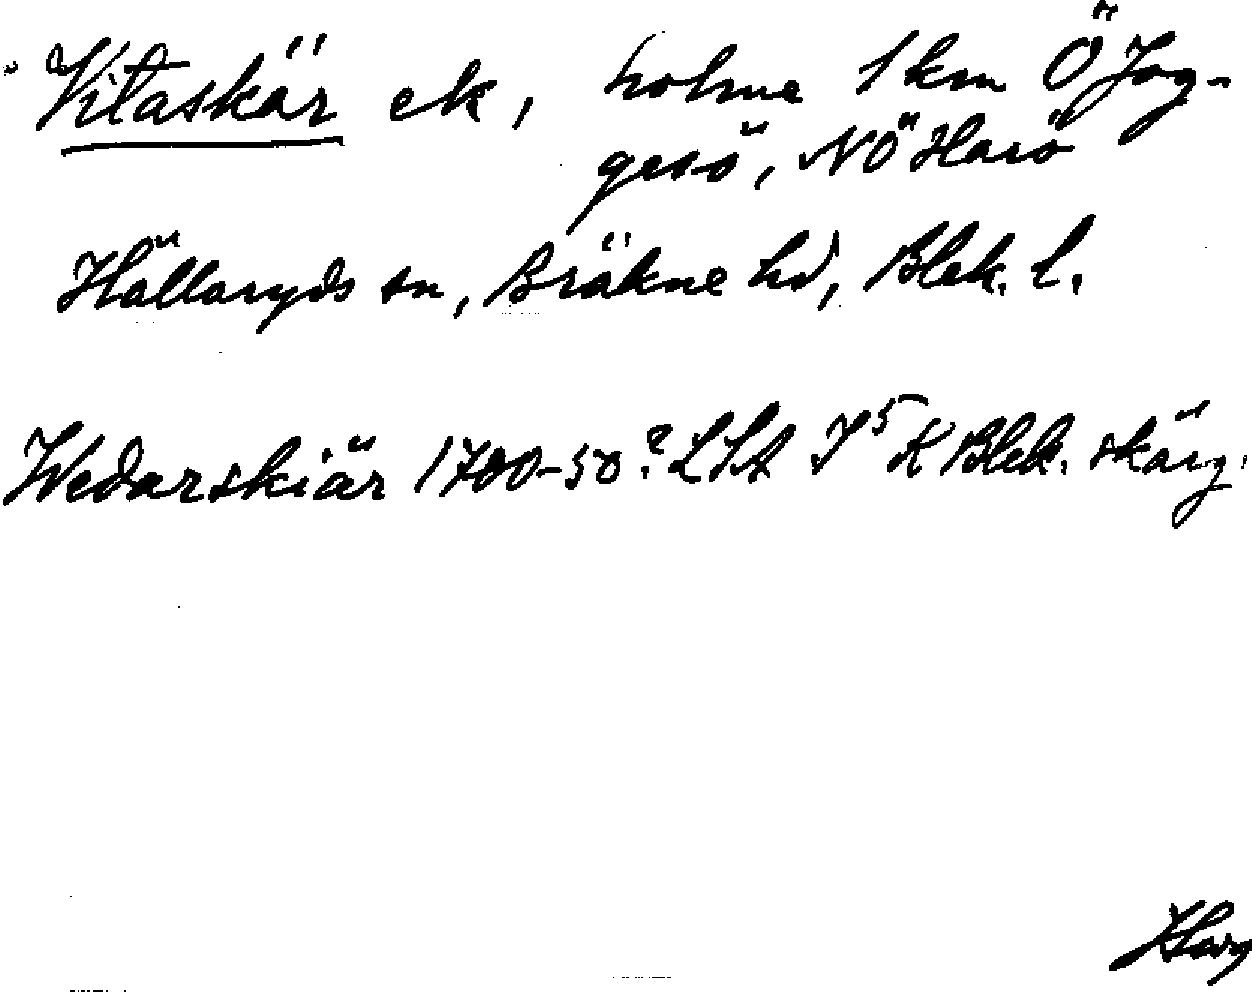 Vitaskär ek, holme 1 km Ö Jog-
gesö, NÖ Harö
Hällaryds sn, Bräkne hd, Blek. l.
Wedarskiär 1700-50? LSA I⁵ K Blek. skärg.